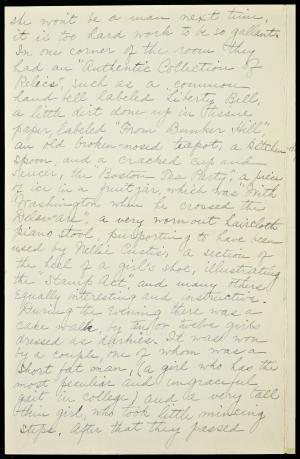 she won't be a man next time,
it is too hard work to be so gallant.
In one corner of the room they
had an "Authentic Collection of
Relics", such as a common
hand-bell labeled "Liberty Bell,
a little dirt done up in tissue
paper, labeled "From Bunker Hill",
an old broken-nosed teapot, a kitchen
spoon, and a cracked cup and
saucer, the Boston Tea Party", a piece
of ice in a fruit jar, which was "With
Washington when he crossed the
Delaware", a very worn out haircloth
piano stool, purporting to have been
used by Nellie Custis, a section of
the heel of a girl's shoe, illustrating
the "Stamp Act", and many others
equally interesting and instructive.
During the evening there was a
cake walk by ten or twelve girls
dressed as darkies. It was won
by a couple, one of whom was a
short fat man, (a girl who has the
most peculiar and ungraceful
gait in college) and a very tall
thin girl, who took little mincing
steps. After that they passed